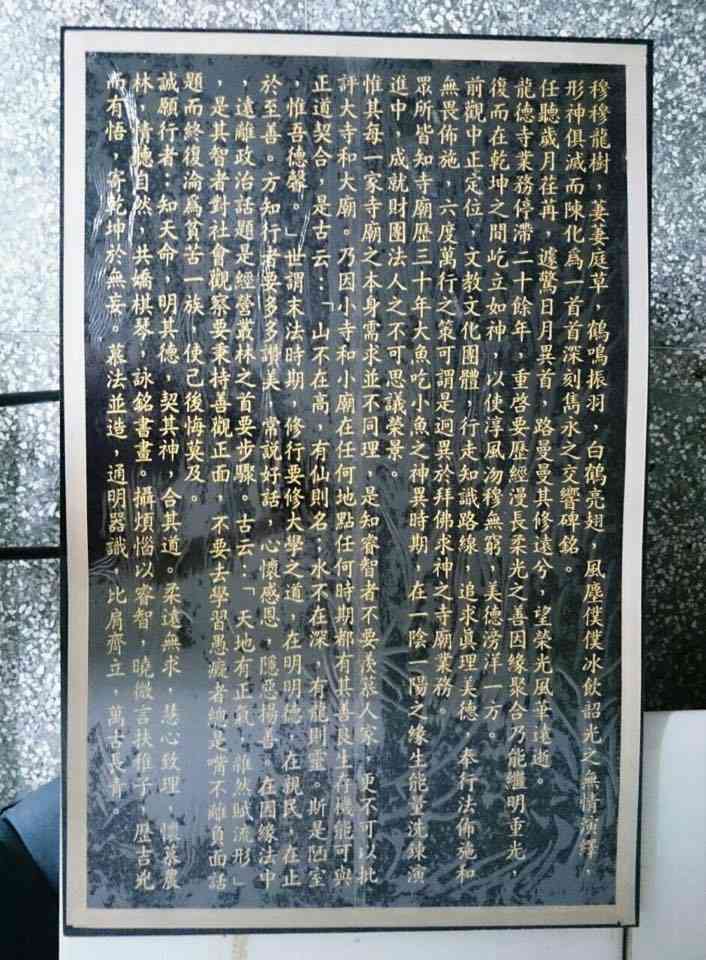 穆穆龍樹，萋萋庭草，鶴鳴振羽，白鶴亮翅，風塵僕僕冰飲韶光之無情演繹，
形神俱滅而陳化為一首首深刻雋永之交響碑銘。
任聽歲月荏苒，遽驚日月異首，路曼曼其修遠兮，望榮光風華遠逝。
龍德寺業務停滯二十餘年，重啓要歷經漫長柔光之善因緣聚合乃能繼明重光，
復而在乾坤之間屹立如神，以使淳風沕穆無窮，美德滂洋一方。
前觀中正定位，文教文化團體，行走知識路線，追求真理美德，奉行法佈施和
無畏佈施，六度萬行之策可謂是迥異於拜佛求神之寺廟業務。
眾所皆知寺廟歷三十年大魚吃小魚之神異時期，在一陰一陽之緣生能量洗鍊演
進中，成就財團法人之不可思議榮景。
惟其每一家寺廟之本身需求並不同理，是知睿智者不要羨慕人家，更不可以批
評大寺和大廟。乃因小寺和小廟在任何地點任何時期都有其善良生存機能可與
正道契合，是古云：「山不在高，有仙則名；水不在深，有龍則靈。斯是陋室
，惟吾德馨。」世謂末法時期，修行要修大學之道，在明明德，在親民，在止
於至善。方知行者要多多讚美，常說好話，心懷感恩，隱惡揚善，在因緣法中
，遠離政治話題是經營叢林之首要步驟。古云：「天地有正氣，雜然賦流形」
，是其智者對社會觀察要秉持善觀正面，不要去學習愚癡者總是嘴不離負面話
題而終復淪為貧苦一族，使己後悔莫及。
誠願行者：知天命，明其德，契其神，合其道。柔遠無求，慧心致理，懷慕農
林，情聽自然，共嬌棋琴，詠銘書畫。攝煩惱以睿智，曉微言扶稚子，歷吉兇
而有悟，寄乾坤於無妄。慕法並造，通明器識，比肩齊立，萬古長青。